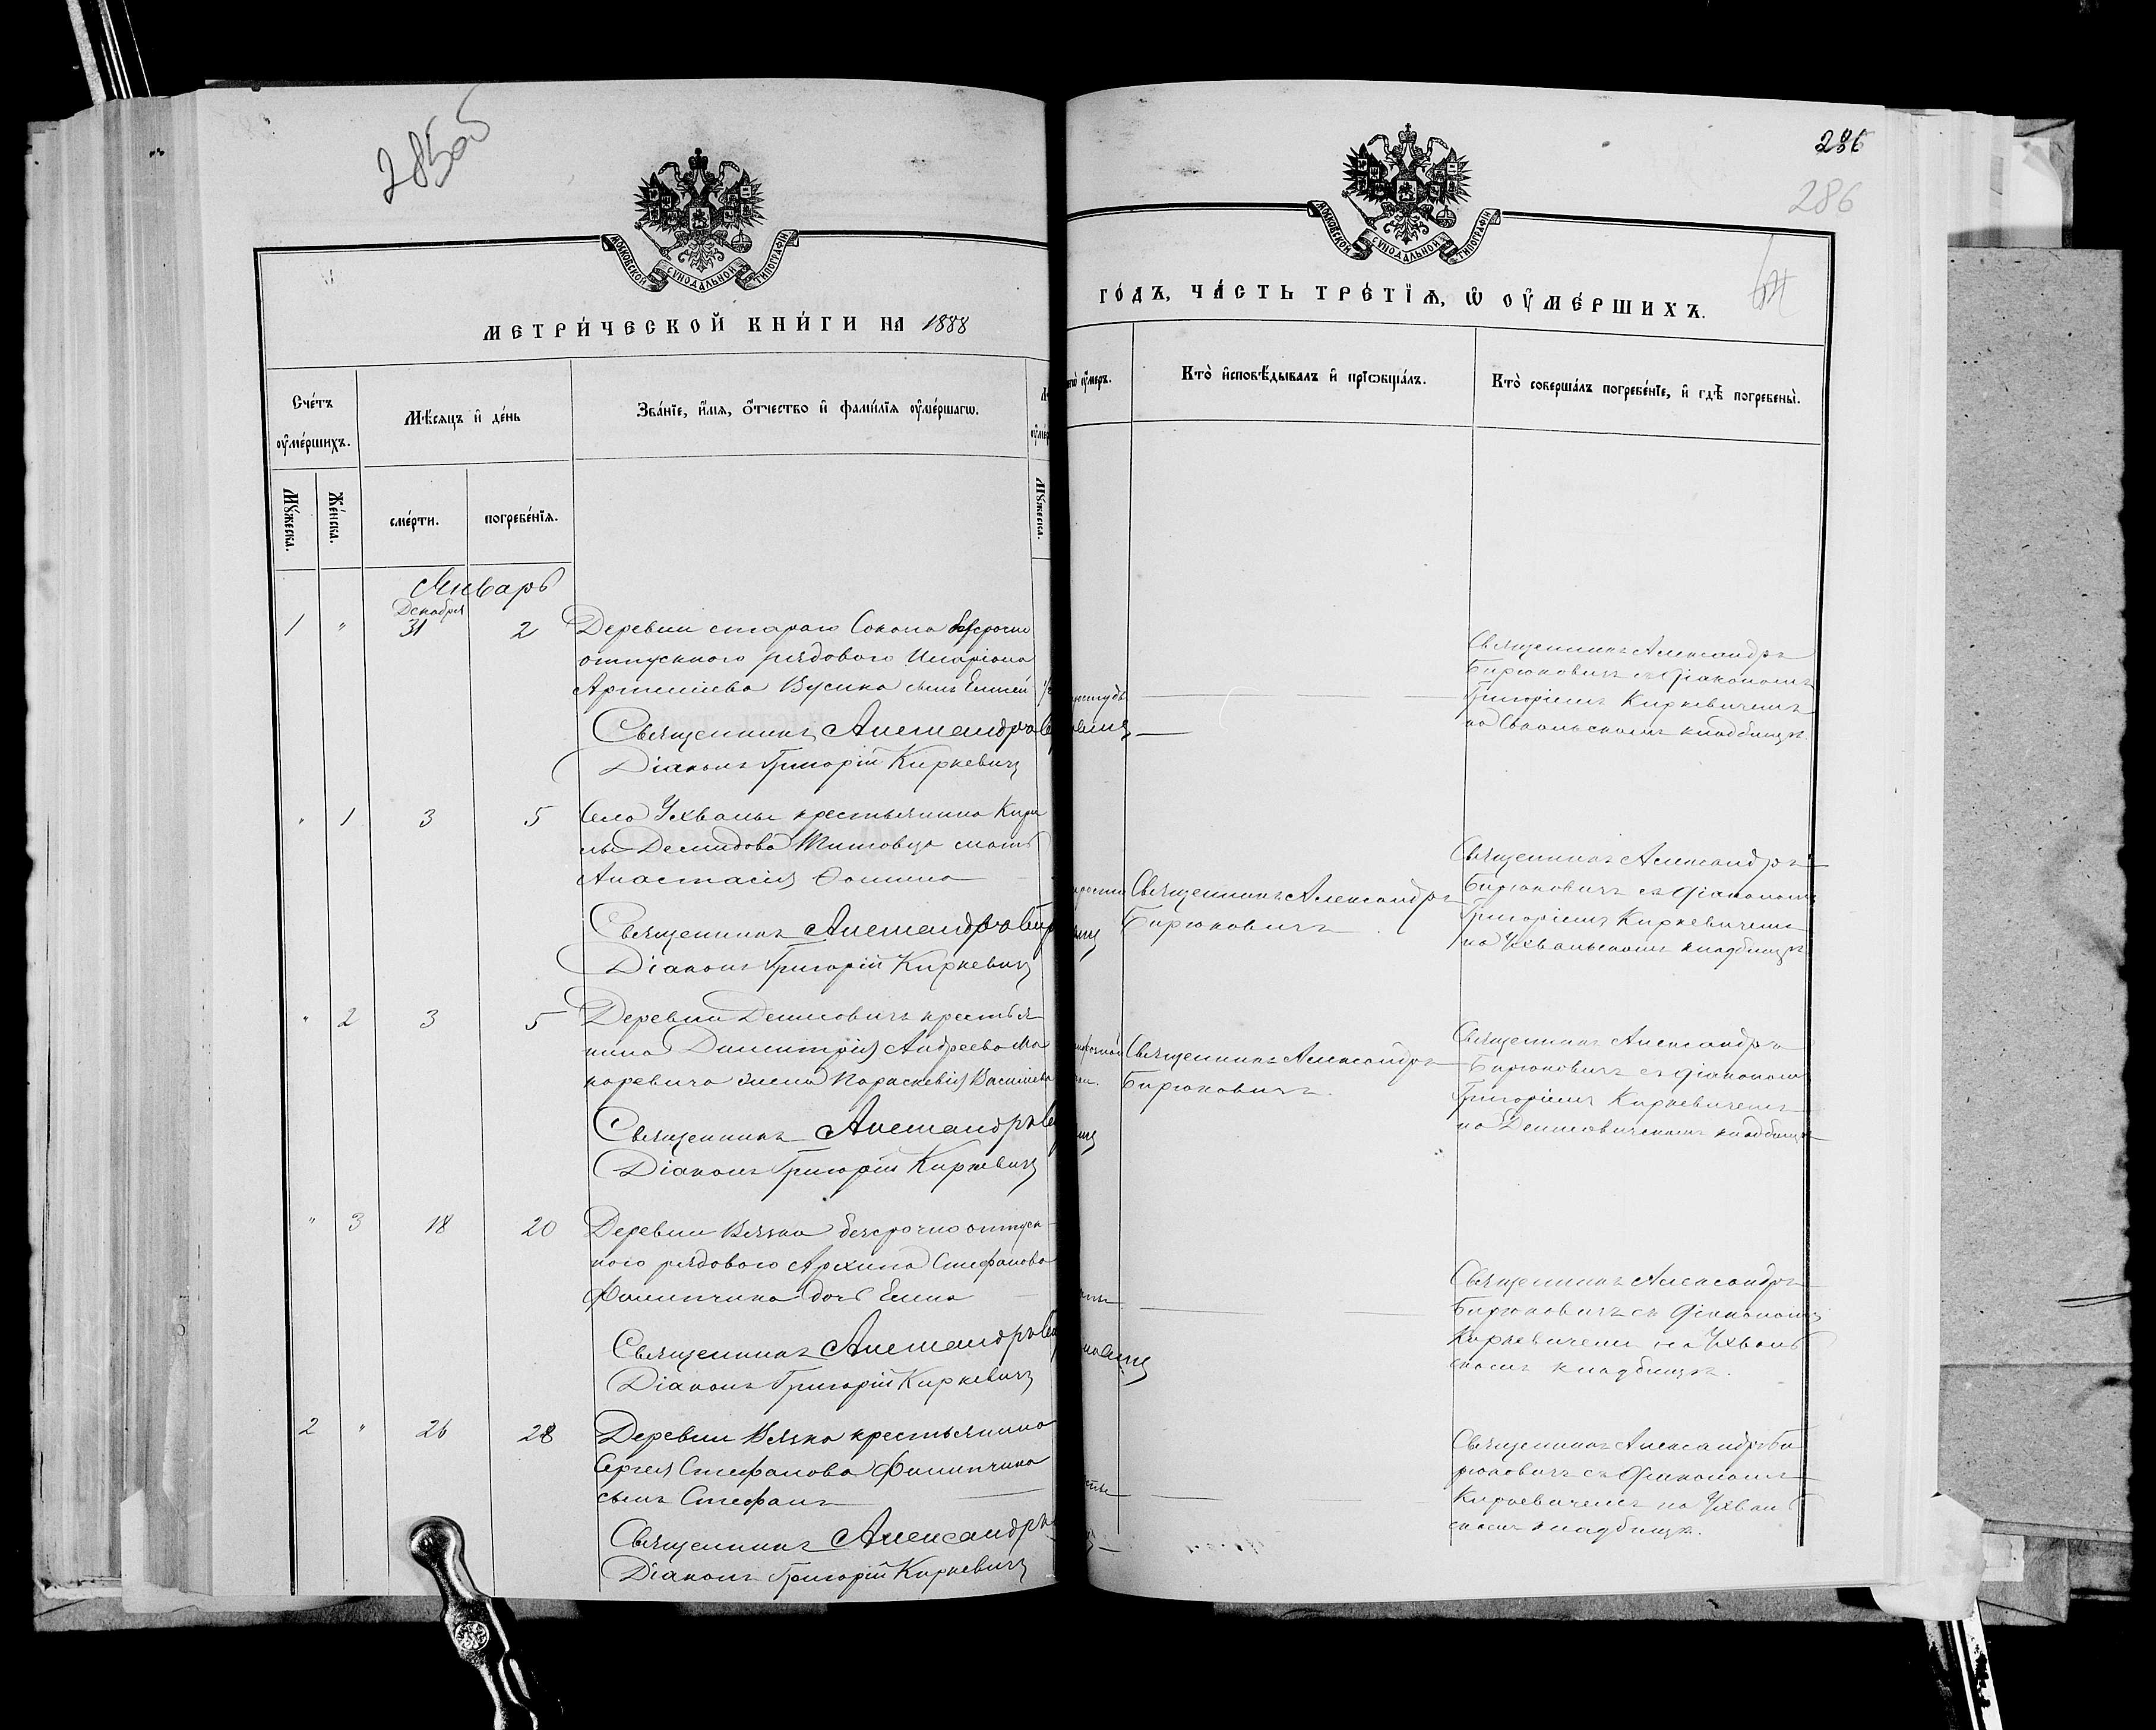 285об
МОСКОВСКОЙ СѴНОДАЛЬНОЙ ТИПОГРАФІИ
МЕТРИ́ЧЕСКОЙ КНИ́ГИ НА 1888
Сче́тъ ᲂу҆ме́ршихъ.
Мѣ́сяцъ и҆ де́нь
Зва́нїе, и҆́мѧ, ѻ҆́тчество и҆ фами́лїѧ ᲂу҆ме́ршагѡ.
Мꙋ́жеска.
Же́нска.
сме́рти.
погребе́нїѧ.
Мꙋ́жеска.
Январь
Декабря
1 " 31 2 Деревни стараго Сокола безсрочно
отпускного рядового Иларіона
Артемьева Бусика сынъ
Священникъ Александръ
Діаконъ Григорій Киркевичъ
" 1 3 5 Села Ухвалы крестьянина Кири
лы Демидова Титовца мать
Анастасія Ѳомина
Священникъ Александръ Бир
Діаконъ Григорій Киркевичъ
" 2 3 5 Деревни Денисовичъ крестья
нина Димитрія Андреева Ма
каревича жена Параскевія Васильева
Священникъ Александръ
Діаконъ Григорій Киркевичъ
" 3 18 20 Деревни Вязка безсрочно отпуск
ного рядового Архипа Стефанова
Филипчика дочь Елена
Священникъ Александръ
Діаконъ Григорій Киркевичъ
2 " 26 28 Деревни Вязка крестьянина
Сергея Стефанова Филипчика
сынъ Стефанъ
Священникъ Александръ
Діаконъ Григорій Киркевичъ
286
286
МОСКОВСКОЙ СѴНОДАЛЬНОЙ ТИПОГРАФІИ
ГО́ДЪ, ЧА́СТЬ ТРЕ́ТЇѦ, Ѡ҆ ОУ҆МЕ́РШИХЪ.
ᲂу҆́меръ.
Кто̀ и҆сповѣ́дывалъ и҆ прїѡбща́лъ.
Кто̀ соверша́лъ погребе́нїе, и҆ гдѣ̀ погребены̀.
Священникъ Александръ
Бирюковичъ съ діакономъ
Григоріемъ Киркевичемъ
на Сокольскомъ кладбищѣ.
Священникъ Александръ
Бирюковичъ
Священникъ Александръ
Бирюковичъ съ діакономъ
Григоріемъ Киркевичемъ
на Ухвальскомъ кладбищѣ
Священникъ Александръ
Бирюковичъ.
Священникъ Александръ
Бирюковичъ съ діакономъ
Григоріемъ Киркевичемъ
на Денисовичскомъ кладбищѣ
Священникъ Александръ
Бирюковичъ съ діакономъ
Киркевичемъ на Ухваль
скомъ кладбищѣ.
Священникъ Александръ Би
рюковичъ съ діакономъ
Киркевичемъ на Ухваль
скомъ кладбищѣ.